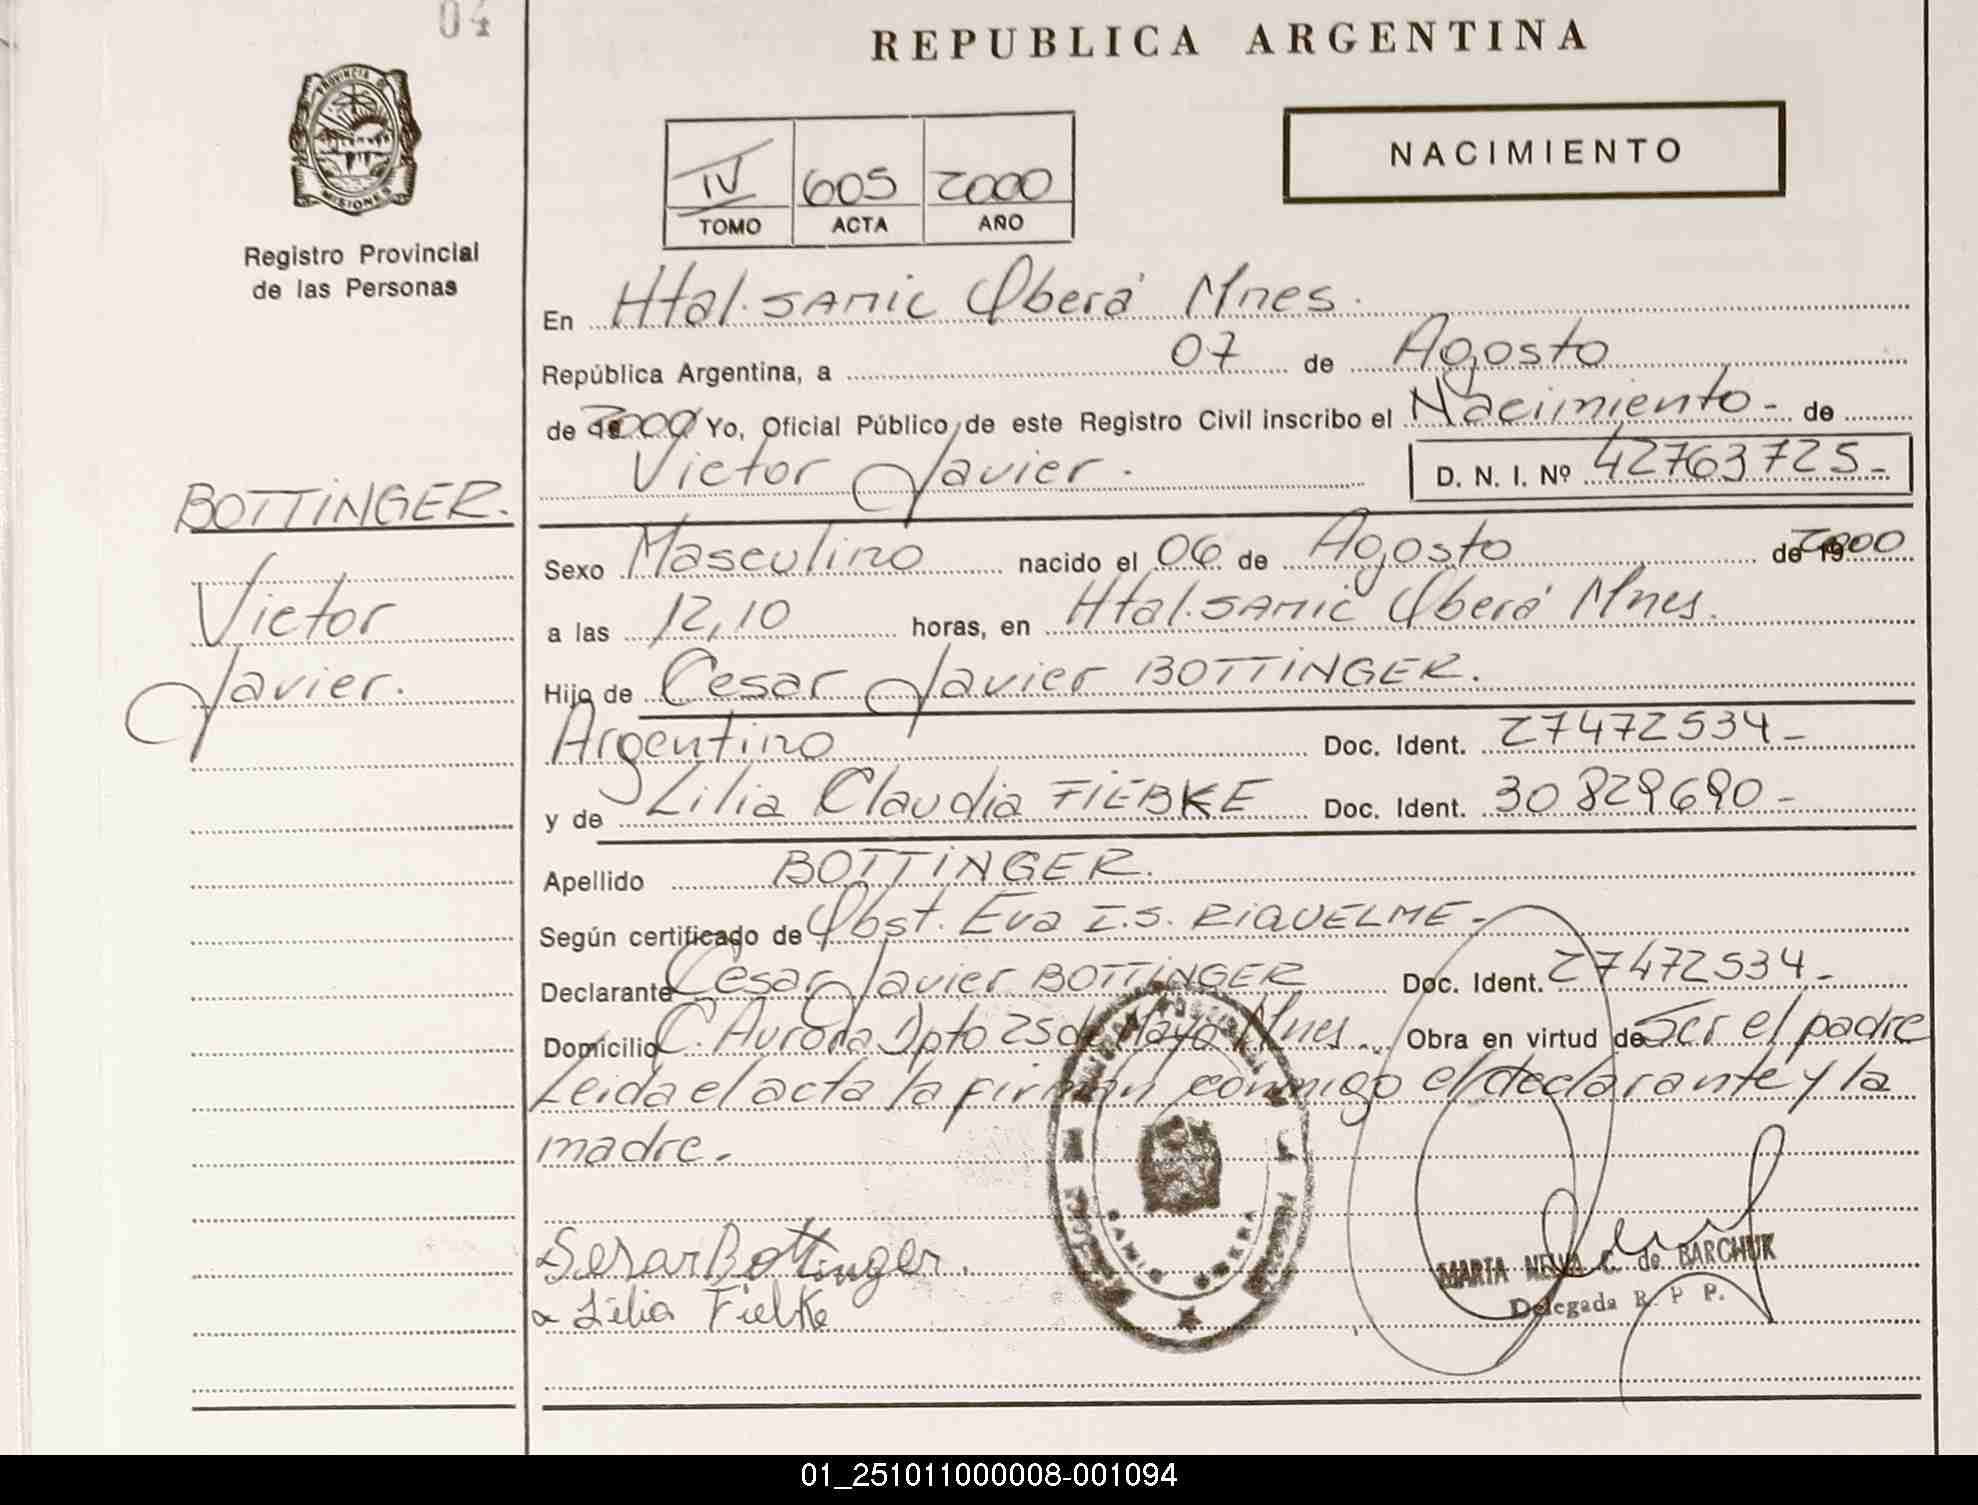 04
REPUBLICA ARGENTINA
PROVINCIA D
MISIONES
Registro Provincial
de las Personas
IV 605 2000
TOMO ACTA AÑO
NACIMIENTO
En Htal. SAMIC Oberá Mnes.
República Argentina, a 07 de Agosto
de 2000 Yo, Oficial Público de este Registro Civil inscribo el Nacimiento - de
Victor Javier. D. N. I. Nº 42763725-
BOTTINGER.
Victor
Javier.
Sexo Masculino nacido el 06 de Agosto de 2000
a las 12,10 horas, en Htal. SAMIC Oberá Mnes.
Hijo de Cesar Javier BOTTINGER.
Argentino Doc. Ident. 27472534-
y de Lilia Claudia FIEBKE Doc. Ident. 30829690-
Apellido BOTTINGER.
Según certificado de Obst. Eva I.S. RIQUELME-
Declarante Cesar Javier BOTTINGER Doc. Ident. 27472534-
Domicilio C. Aurora Dpto 25 de Mayo Mnes. Obra en virtud de Ser el padre
Leida el acta la firman conmigo el declarante y la
madre.
SAMIC OBERA
Sesar Bottinger.
Lilia Fiebke
MARTA NELVA C. de BARCHUK
Delegada R. P. P.
01_251011000008-001094